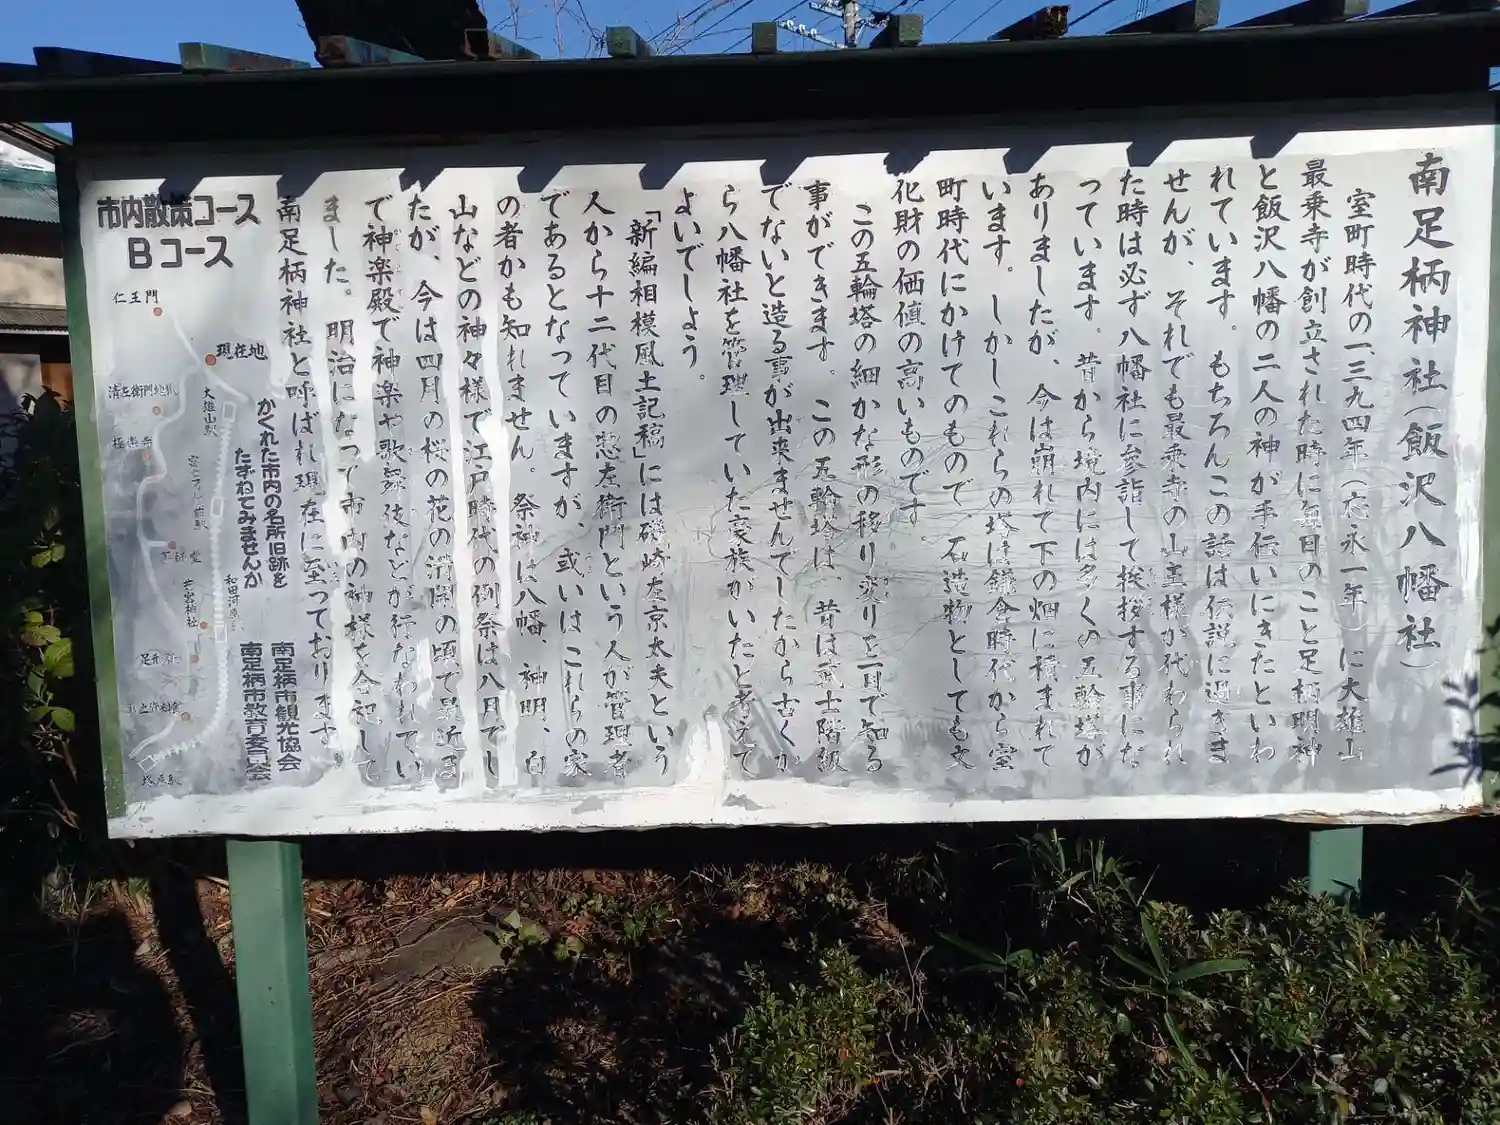 南足柄神社(飯沢八幡社)
室町時代の一三九四年(応永一年)に大雄山
最乗寺が創立された時に毎日のこと足柄明神
と飯沢八幡の二人の神が手伝いにきたといわ
れています。もちろんこの話は伝説に過ぎま
せんが、それでも最乗寺の山主様が代わられ
た時は必ず八幡社に参詣して挨拶する事にな
っています。昔から境内には多くの五輪塔が
ありましたが、今は崩れて下の畑に積まれて
います。しかしこれらの塔は鎌倉時代から室
町時代にかけてのもので、石造物としても文
化財の価値の高いものです。
この五輪塔の細かな形の移り変りを一目で知る
事ができます。この五輪塔は、昔は武士階級
でないと造る事が出来ませんでしたから古くか
ら八幡社を管理していた豪族がいたと考えて
よいでしよう。
「新編相模風土記稿」には磯崎左京太夫という
人から十二代目の惣左衛門という人が管理者
であるとなっていますが、或いはこれらの家
の者かも知れません。祭神は八幡、神明、白
山などの神々様で江戸時代の例祭は八月でし
たが、今は四月の桜の花の満開の頃で最近ま
で神楽殿で神楽や歌舞伎などが行なわれてい
ました。明治になって市内の神様を合祀して
南足柄神社と呼ばれ現在に至っております。
市内散策コース
Bコース
仁王門
現在地
清左衛門地獄
大雄山駅
極楽寺
和田河原
かくれた市内の名所旧跡を
たずねてみませんか
南足柄市観光協会
南足柄市教育委員会